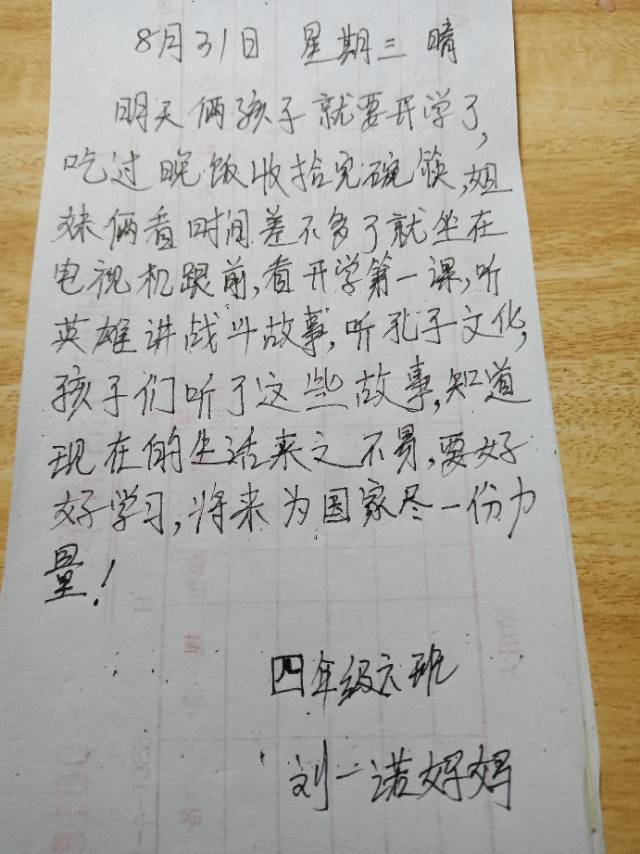 8月31日 星期三 晴
明天俩孩子就要开学了,
吃过晚饭收拾完碗筷,姐
妹俩看时间差不多了就坐在
电视机跟前,看开学第一课,听
英雄讲战斗故事,听孔子文化,
孩子们听了这些故事,知道
现在的生活来之不易,要好
好学习,将来为国家尽一份力
量!
四年级六班
刘一诺妈妈